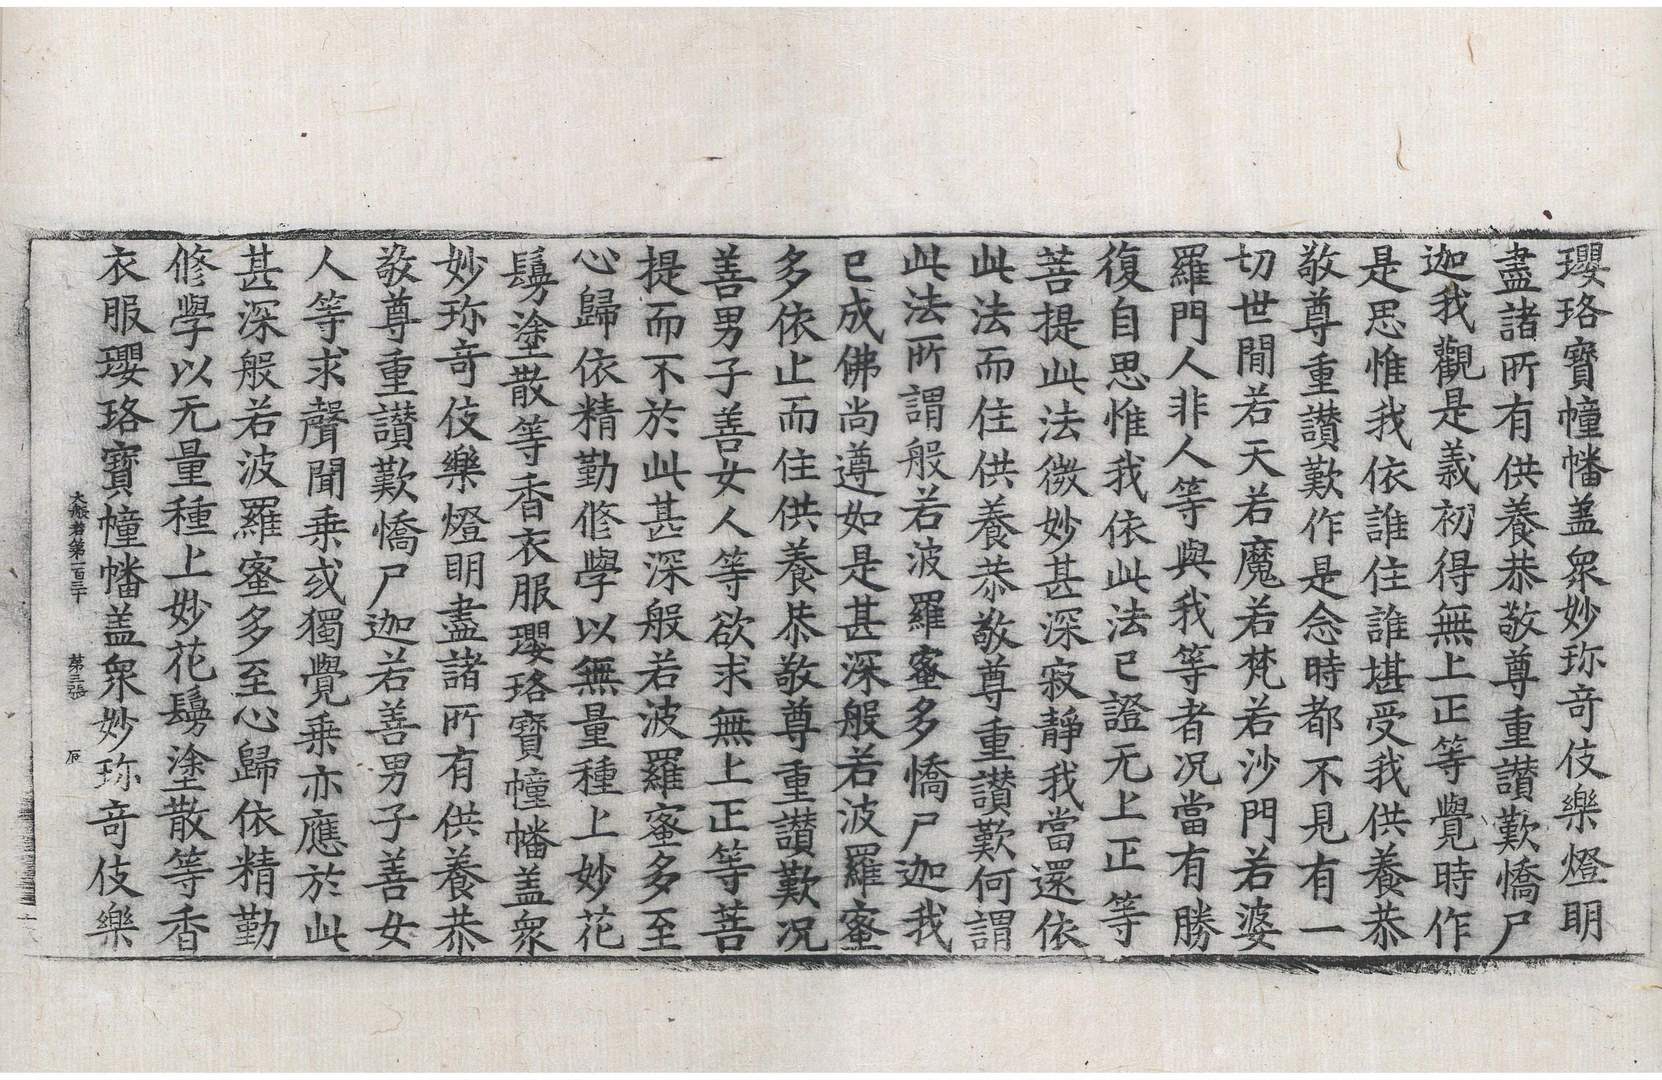 瓔珞寶幢幡盖衆妙珎竒伎樂燈明
盡諸所有供養恭敬尊重讃歎憍尸
迦我觀是義初得無上正等覺時作
是思惟我依誰住誰堪受我供養恭
敬尊重讃歎作是念時都不見有一
切世間若天若魔若梵若沙門若婆
羅門人非人等與我等者况當有勝
復自思惟我依此法已證无上正等
菩提此法微妙甚深寂靜我當還依
此法而住供養恭敬尊重讃歎何謂
此法所謂般若波羅蜜多憍尸迦我
已成佛尚遵如是甚深般若波羅蜜
多依止而住供養恭敬尊重讃歎况
善男子善女人等欲求無上正等菩
提而不於此甚深般若波羅蜜多至
心歸依精勤修學以無量種上妙花
鬘塗散等香衣服瓔珞寶幢幡盖衆
妙珎竒伎樂燈明盡諸所有供養恭
敬尊重讃歎憍尸迦若善男子善女
人等求聲聞乗或獨覺乗亦應於此
甚深般若波羅蜜多至心歸依精勤
修學以无量種上妙花鬘塗散等香
衣服瓔珞寶幢幡盖衆妙珎竒伎樂
大般若第一百三十 第三張